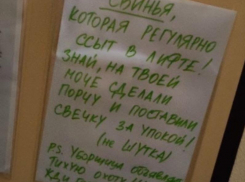 СВИНЬЯ,
КОТОРАЯ РЕГУЛЯРНО
ССЫТ В ЛИФТЕ!
ЗНАЙ, НА ТВОЕЙ
МОЧЕ СДЕЛАЛИ
ПОРЧУ И ПОСТАВИЛИ
СВЕЧКУ ЗА УПОКОЙ!
(НЕ ШУТКА)
P.S. Уборщица
ЖДИ